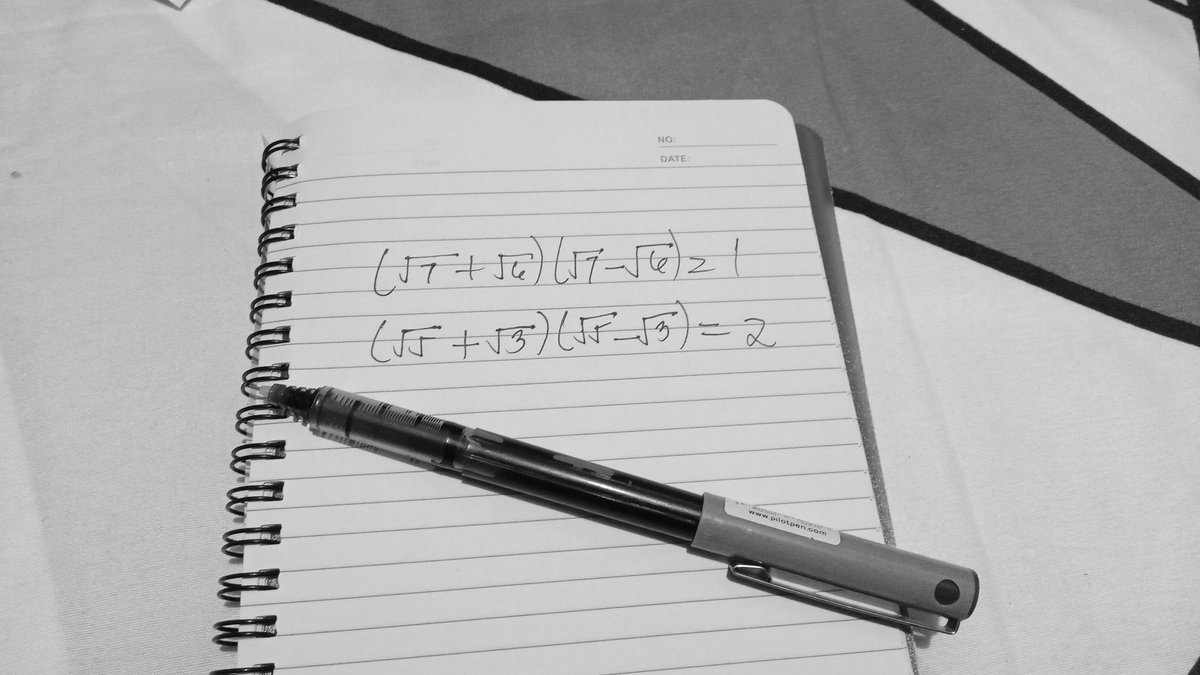 NO:
DATE:
(√7 + √6)(√7 - √6) = 1
(√5 + √3)(√5 - √3) = 2
www.pilotpen.com